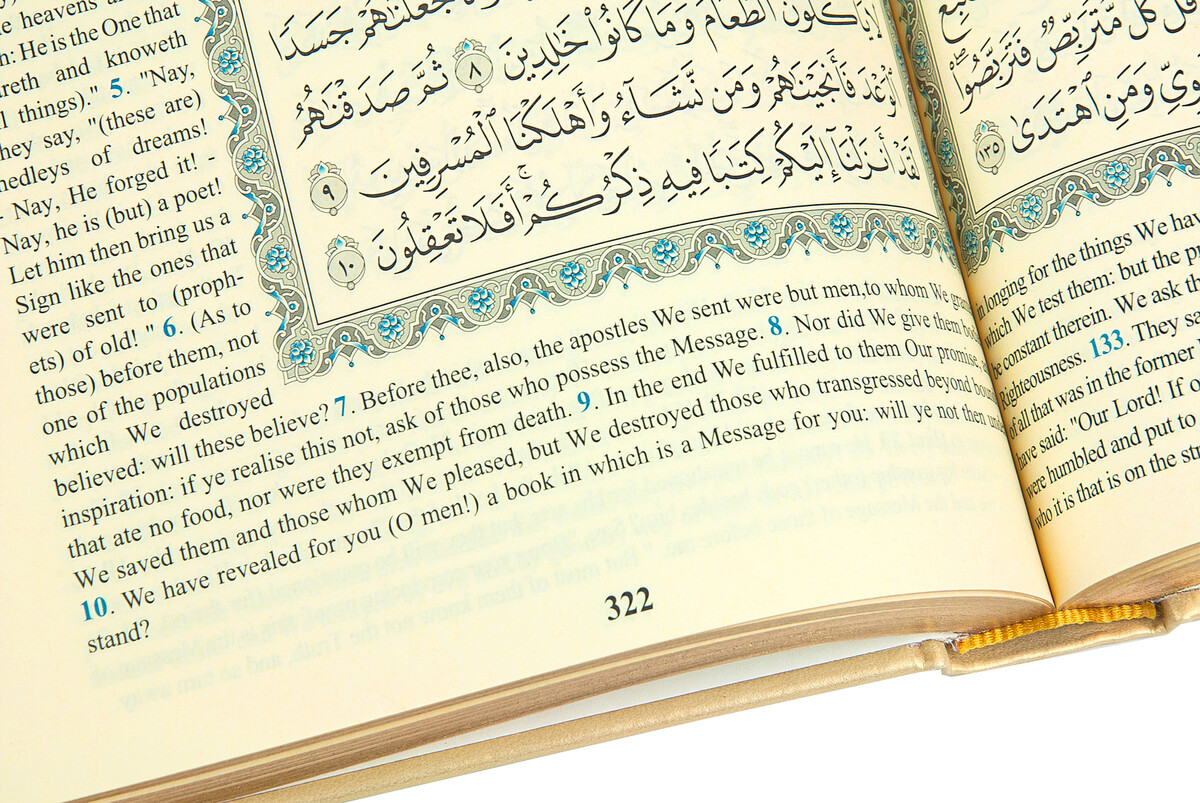 جَعَلْنَٰهُمْ جَسَدًا
لَّا يَأْكُلُونَ ٱلطَّعَامَ وَمَا كَانُوا۟ خَٰلِدِينَ ٨ ثُمَّ صَدَقْنَٰهُمُ
ٱلْوَعْدَ فَأَنجَيْنَٰهُمْ وَمَن نَّشَآءُ وَأَهْلَكْنَا ٱلْمُسْرِفِينَ ٩
لَقَدْ أَنزَلْنَآ إِلَيْكُمْ كِتَٰبًا فِيهِ ذِكْرُكُمْ ۖ أَفَلَا تَعْقِلُونَ ١٠
heavens
h: He is the One that
areth and knoweth
l things)." 5. "Nay,
they say, "(these are)
medleys of dreams!
- Nay, He forged it!
Nay, he is (but) a poet!
Let him then bring us a
Sign like the ones that
were sent to (proph-
ets) of old! " 6. (As to
those) before them, not
one of the populations
which We destroyed
believed: will these believe? 7. Before thee, also, the apostles We sent were but men,to whom We gran
inspiration: if ye realise this not, ask of those who possess the Message. 8. Nor did We give them bod
that ate no food, nor were they exempt from death. 9. In the end We fulfilled to them Our promise, a
We saved them and those whom We pleased, but We destroyed those who transgressed beyond boun
10. We have revealed for you (O men!) a book in which is a Message for you: will ye not then unde
stand?
322
قُلْ كُلٌّ مُّتَرَبِّصٌ فَتَرَبَّصُوا۟
وَمَنِ ٱهْتَدَىٰ ١٣٥
in longing for the things We hav
which We test them: but the pr
be constant therein. We ask th
Righteousness. 133. They sa
of all that was in the former
have said: "Our Lord! If o
were humbled and put to
who it is that is on the str